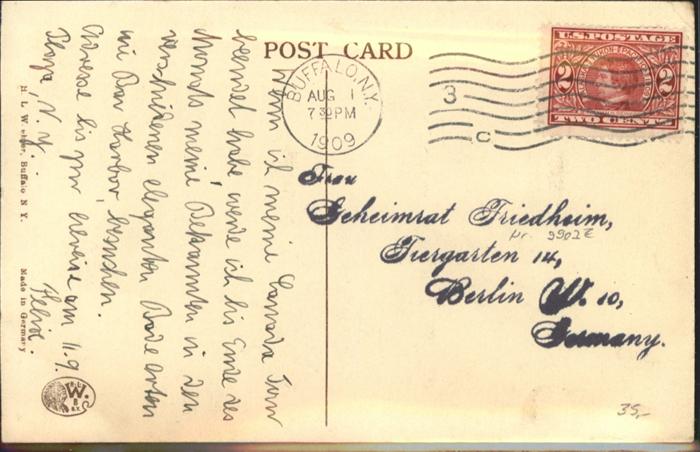 POST CARD
BUFFALO, N.Y.
AUG 1
7 30 PM
1909
3
C
U.S. POSTAGE
2 2
TWO CENTS
Wenn ich meine Canada Tour
beendet habe werde ich bis Ende des
Monats meine Bekannten in den
verschiedenen eleganten Badeorten
wie Bar Harbor, besuchen.
Adresse bis zur Abreise am 11.9.
Plaza, N.Y.
Frau
Geheimrat Friedheim,
Tiergarten 14,
Berlin W. 10,
Germany.
Nr. 9902 E
35,-
Buffalo N.Y.
Made in Germany